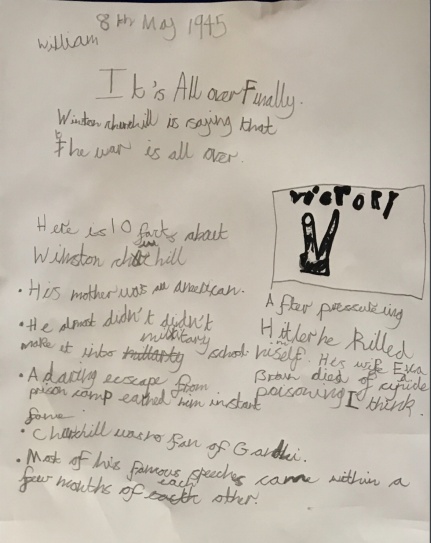 8th May 1945
William
It is All over Finally.
Winston churchill is saying that
the war is all over.
VICTORY
Here is 10 fun facts about
Winston chill
• His mother was an american.
• He almost didn't didn't
make it into military school
• A daring ecscape from
prison camp earned him instant
fame.
• Churchill was no fan of Gandhi.
• Most of his famous speeches came within a
few months of each other.
After pressurizing
Hitler he killed
himself. Hes wife Eva
Brown died of
poisoning I think.